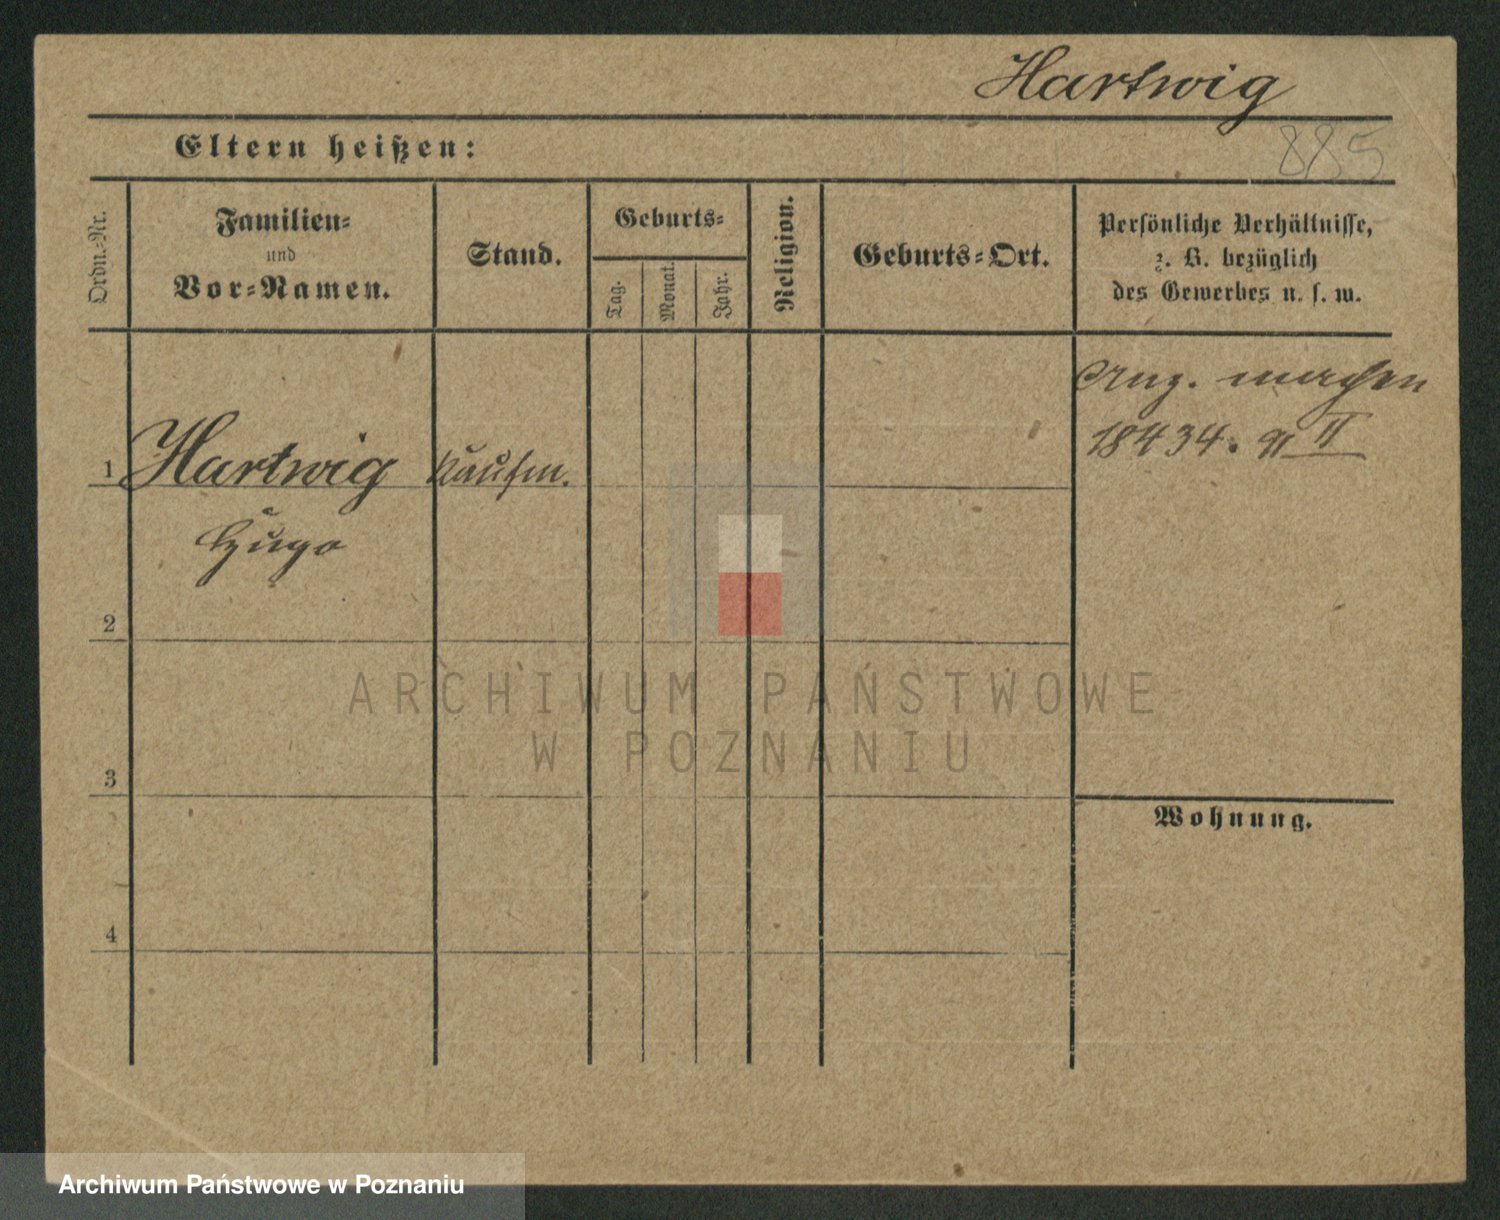 Hartwig
885
Eltern heißen:
Ordn.-Nr.
Familien-
und
Vor-Namen.
Stand.
Geburts-
Tag.
Monat.
Jahr.
Religion.
Geburts-Ort.
Persönliche Verhältnisse,
z. B. bezüglich
des Gewerbes u. s. w.
1
Hartwig
Kaufm.
Anz. machen
18434. 91 II
Hugo
2
3
4
Wohnung.
ARCHIWUM PAŃSTWOWE
W POZNANIU
Archiwum Państwowe w Poznaniu